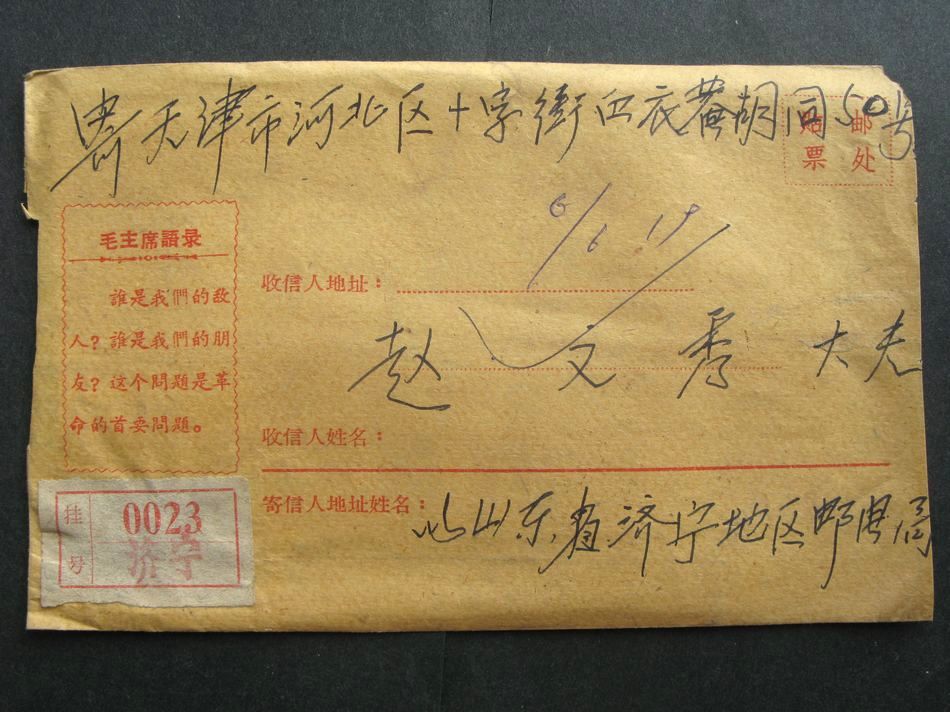 寄天津市河北区十字街白衣菴胡同50号
贴邮
票处
6/6 19
毛主席語录
誰是我們的敌
人？誰是我們的朋
友？这个問題是革
命的首要問題。
收信人地址：
赵文秀大夫
收信人姓名：
寄信人地址姓名：
山东省济宁地区邮电局
挂号
0023
济宁